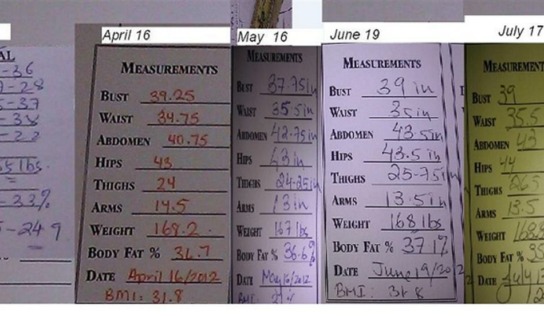 AL
-36
-28
-37
-38
-22
lbs
-33%
-24.9
April 16
MEASUREMENTS
BUST 39.25
WAIST 34.75
ABDOMEN 40.75
HIPS 43
THIGHS 24
ARMS 14.5
WEIGHT 168.2
BODY FAT % 36.7
DATE April 16/2012
BMI: 31.8
May 16
MEASUREMENTS
BUST 37.75in
WAIST 35.5in
ABDOMEN 42.75in
HIPS 43in
THIGHS 24-25in
ARMS 13in
WEIGHT 167 lbs
BODY FAT % 36.6%
DATE May 16/2012
BMI
June 19
MEASUREMENTS
BUST 39 in
WAIST 35in
ABDOMEN 43.5in
HIPS 43.5in
THIGHS 25-75in
ARMS 13.5in
WEIGHT 168 lbs
BODY FAT % 37.1%
DATE June 19/2012
BMI: 31.8
July 17
MEASUREMENT
BUST 39
WAIST 35.5
ABDOMEN 43
HIPS 44
THIGHS 26.5
ARMS 13.5
WEIGHT 168
BODY FAT %
DATE July 17